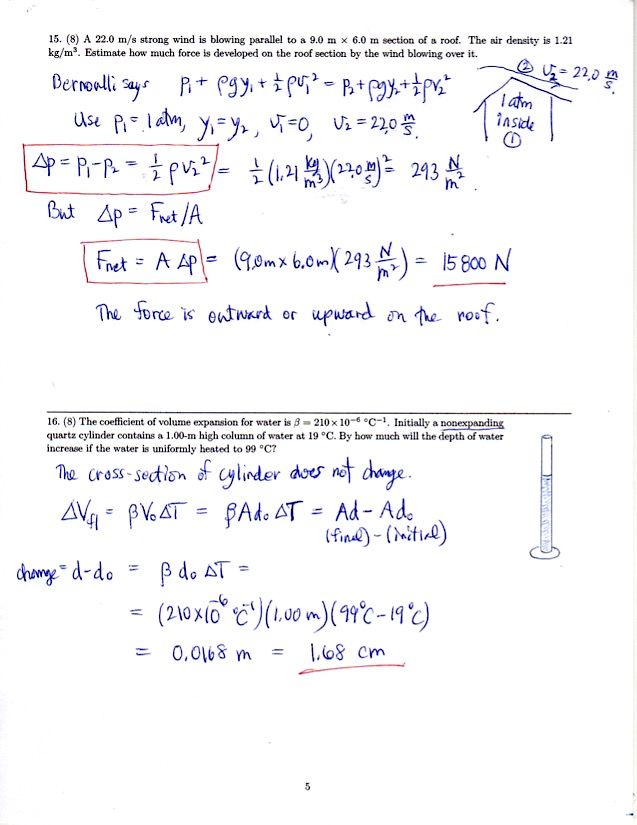 15. (8) A 22.0 m/s strong wind is blowing parallel to a 9.0 m × 6.0 m section of a roof. The air density is 1.21
kg/m³. Estimate how much force is developed on the roof section by the wind blowing over it.
② v₂ = 22,0 m/s.
Bernoulli says P₁ + ρgy₁ + ½ρv₁² = P₂ + ρgy₂ + ½ρv₂²
1 atm
inside
①
Use P₁ = 1 atm, y₁ = y₂, v₁ = 0, v₂ = 22.0 m/s.
Δp = P₁ - P₂ = ½ρv₂² = ½(1.21 kg/m³)(22.0 m/s)² = 293 N/m²
But Δp = Fnet/A
Fnet = A Δp = (9.0m × 6.0m)(293 N/m²) = 15800 N
The force is outward or upward on the roof.
16. (8) The coefficient of volume expansion for water is β = 210×10⁻⁶ °C⁻¹. Initially a nonexpanding
quartz cylinder contains a 1.00-m high column of water at 19 °C. By how much will the depth of water
increase if the water is uniformly heated to 99 °C?
The cross-section of cylinder does not change.
ΔVfl = βV₀ΔT = βAd₀ΔT = Ad - Ad₀
(final) - (initial)
change = d-d₀ = β d₀ ΔT =
= (210×10⁻⁶ °C⁻¹)(1.00 m)(99°C - 19°C)
= 0.0168 m = 1.68 cm
5